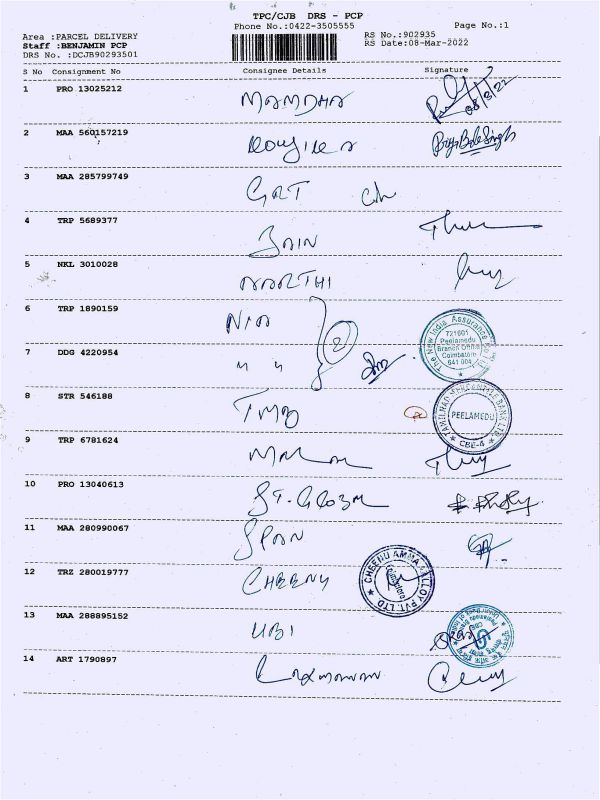 TPC/CJB DRS - PCP
Phone No.:0422-3505555 Page No.:1
Area :PARCEL DELIVERY RS No.:902935
Staff :BENJAMIN PCP RS Date:08-Mar-2022
DRS No. :DCJB90293501
S No Consignment No Consignee Details Signature
1 PRO 13025212 MAMDHA 08/3/22
2 MAA 560157219
3 MAA 285799749 GRT
4 TRP 5689377 JAIN
5 NKL 3010028 AARTHI
6 TRP 1890159 NIA
The New India Assurance Co.
721601
Peelamedu
Branch Office
Coimbatore
641 004
7 DDG 4220954 " " 2
8 STR 546188 TMB
TAMILNAD MERCANTILE BANK LTD.
PEELAMEDU
CBE-4
9 TRP 6781624
10 PRO 13040613
11 MAA 280990067 SPAN
12 TRZ 280019777 CHEENU
CHEENU AMMA ALLOY PVT. LTD.
Coimbatore
13 MAA 288895152 UBI
14 ART 1790897 Laxmanan